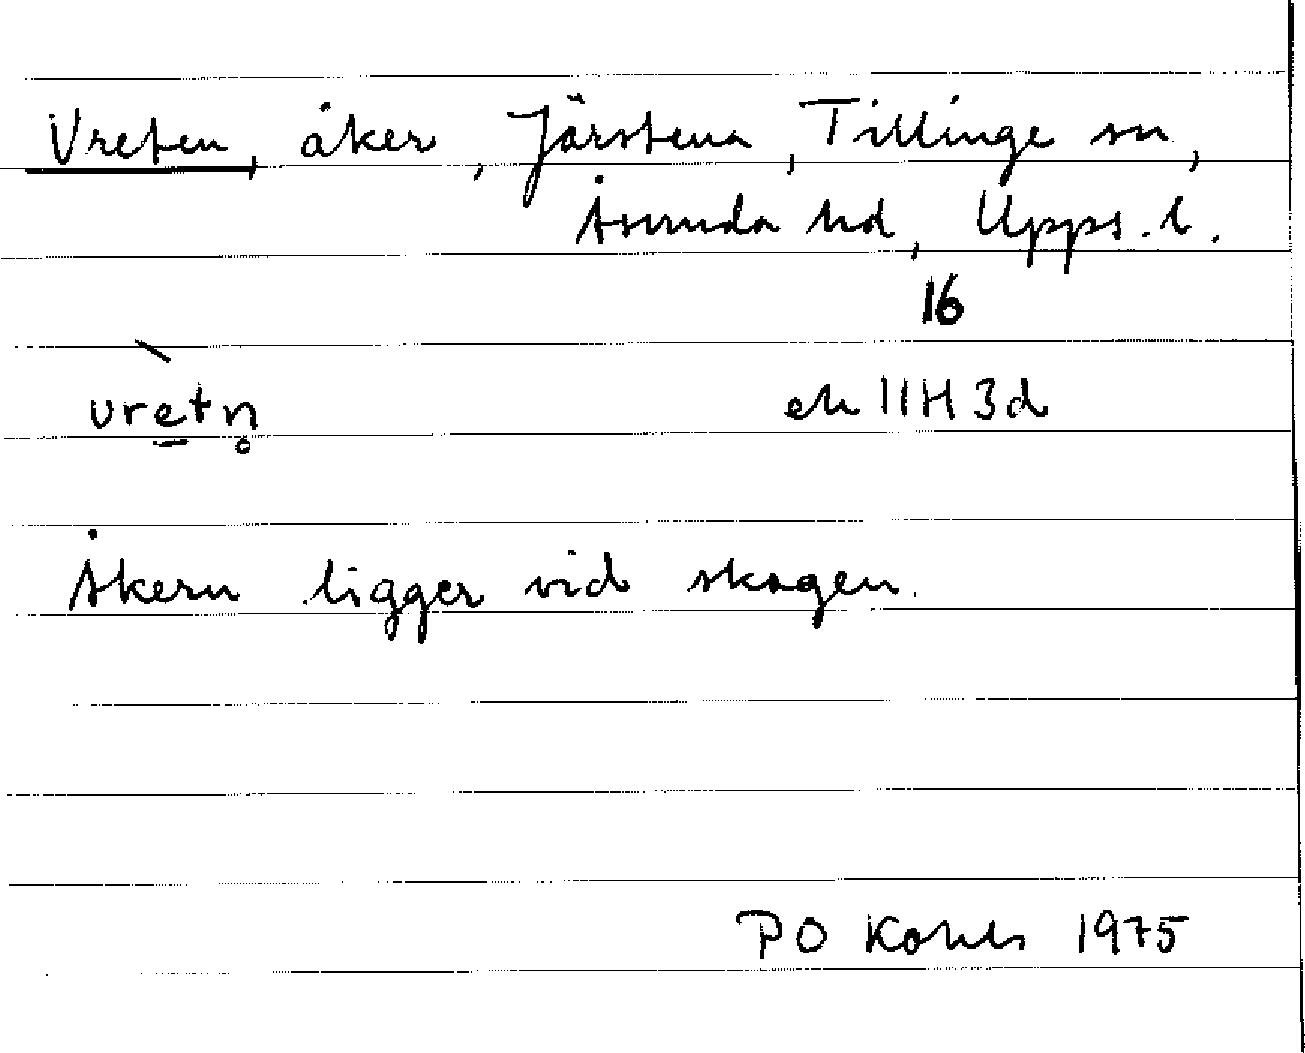 Vreten, åker, Järstena, Tillinge sn,
Åsunda hd, Upps. l.
16
vretn̥ ek 11H 3d
Åkern ligger vid skogen.
PO 1975